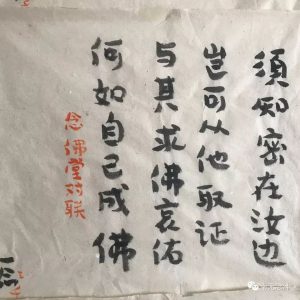 須知密在汝边
岂可从他取证
与其求佛哀佑
何如自己成佛
念佛堂对联